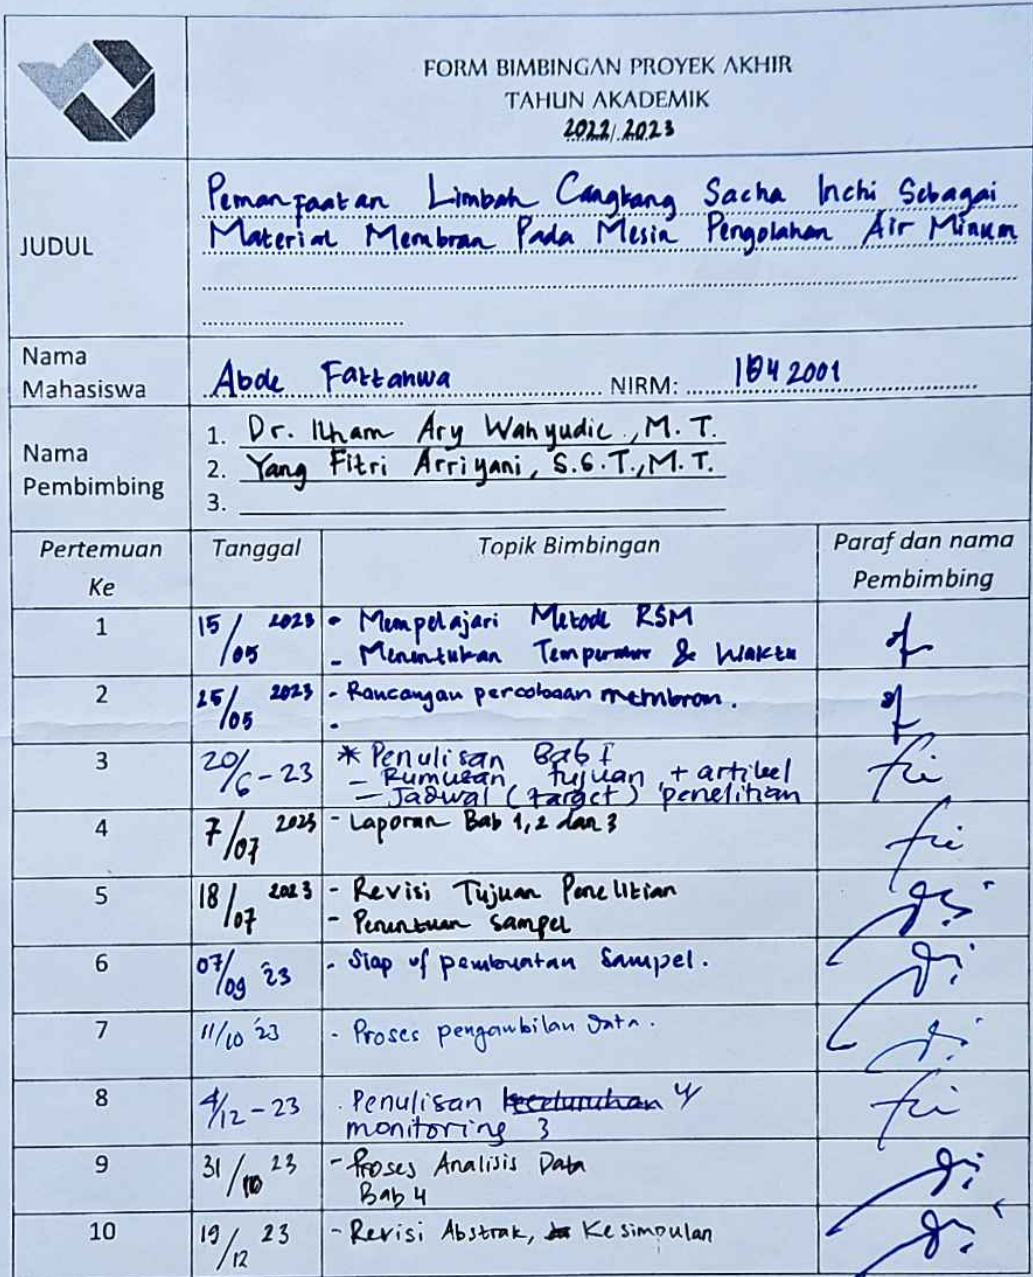 FORM BIMBINGAN PROYEK AKHIR
TAHUN AKADEMIK
2022/2023
JUDUL
Pemanfaatan Limbah Cangkang Sacha Inchi Sebagai
Material Membran Pada Mesin Pengolahan Air Minum
Nama
Mahasiswa
Abde Fattanwa NIRM: 1042001
Nama
Pembimbing
1. Dr. Ilham Ary Wahyudie, M. T.
2. Yang Fitri Arriyani, S.S.T., M. T.
3.
Pertemuan
Ke
Tanggal
Topik Bimbingan
Paraf dan nama
Pembimbing
1 15/05 2023 - Mempelajari Metode RSM
- Menentukan Temperatur & Waktu
2 25/05 2023 - Rancangan percobaan membran.
-
3 20/6-23 * Penulisan Bab I
- Rumusan, tujuan, + artikel
- Jadwal (target) penelitian
4 7/07 2023 - Laporan Bab 1, 2 dan 3
5 18/07 2023 - Revisi Tujuan Penelitian
- Penentuan Sampel
6 07/09 '23 - Siap u/ pembuatan Sampel.
7 11/10 '23 - Proses pengambilan data.
8 4/12-23 Penulisan u/
monitoring 3
9 31/10 23 - Proses Analisis Data
Bab 4
10 19/12 23 - Revisi Abstrak, Kesimpulan